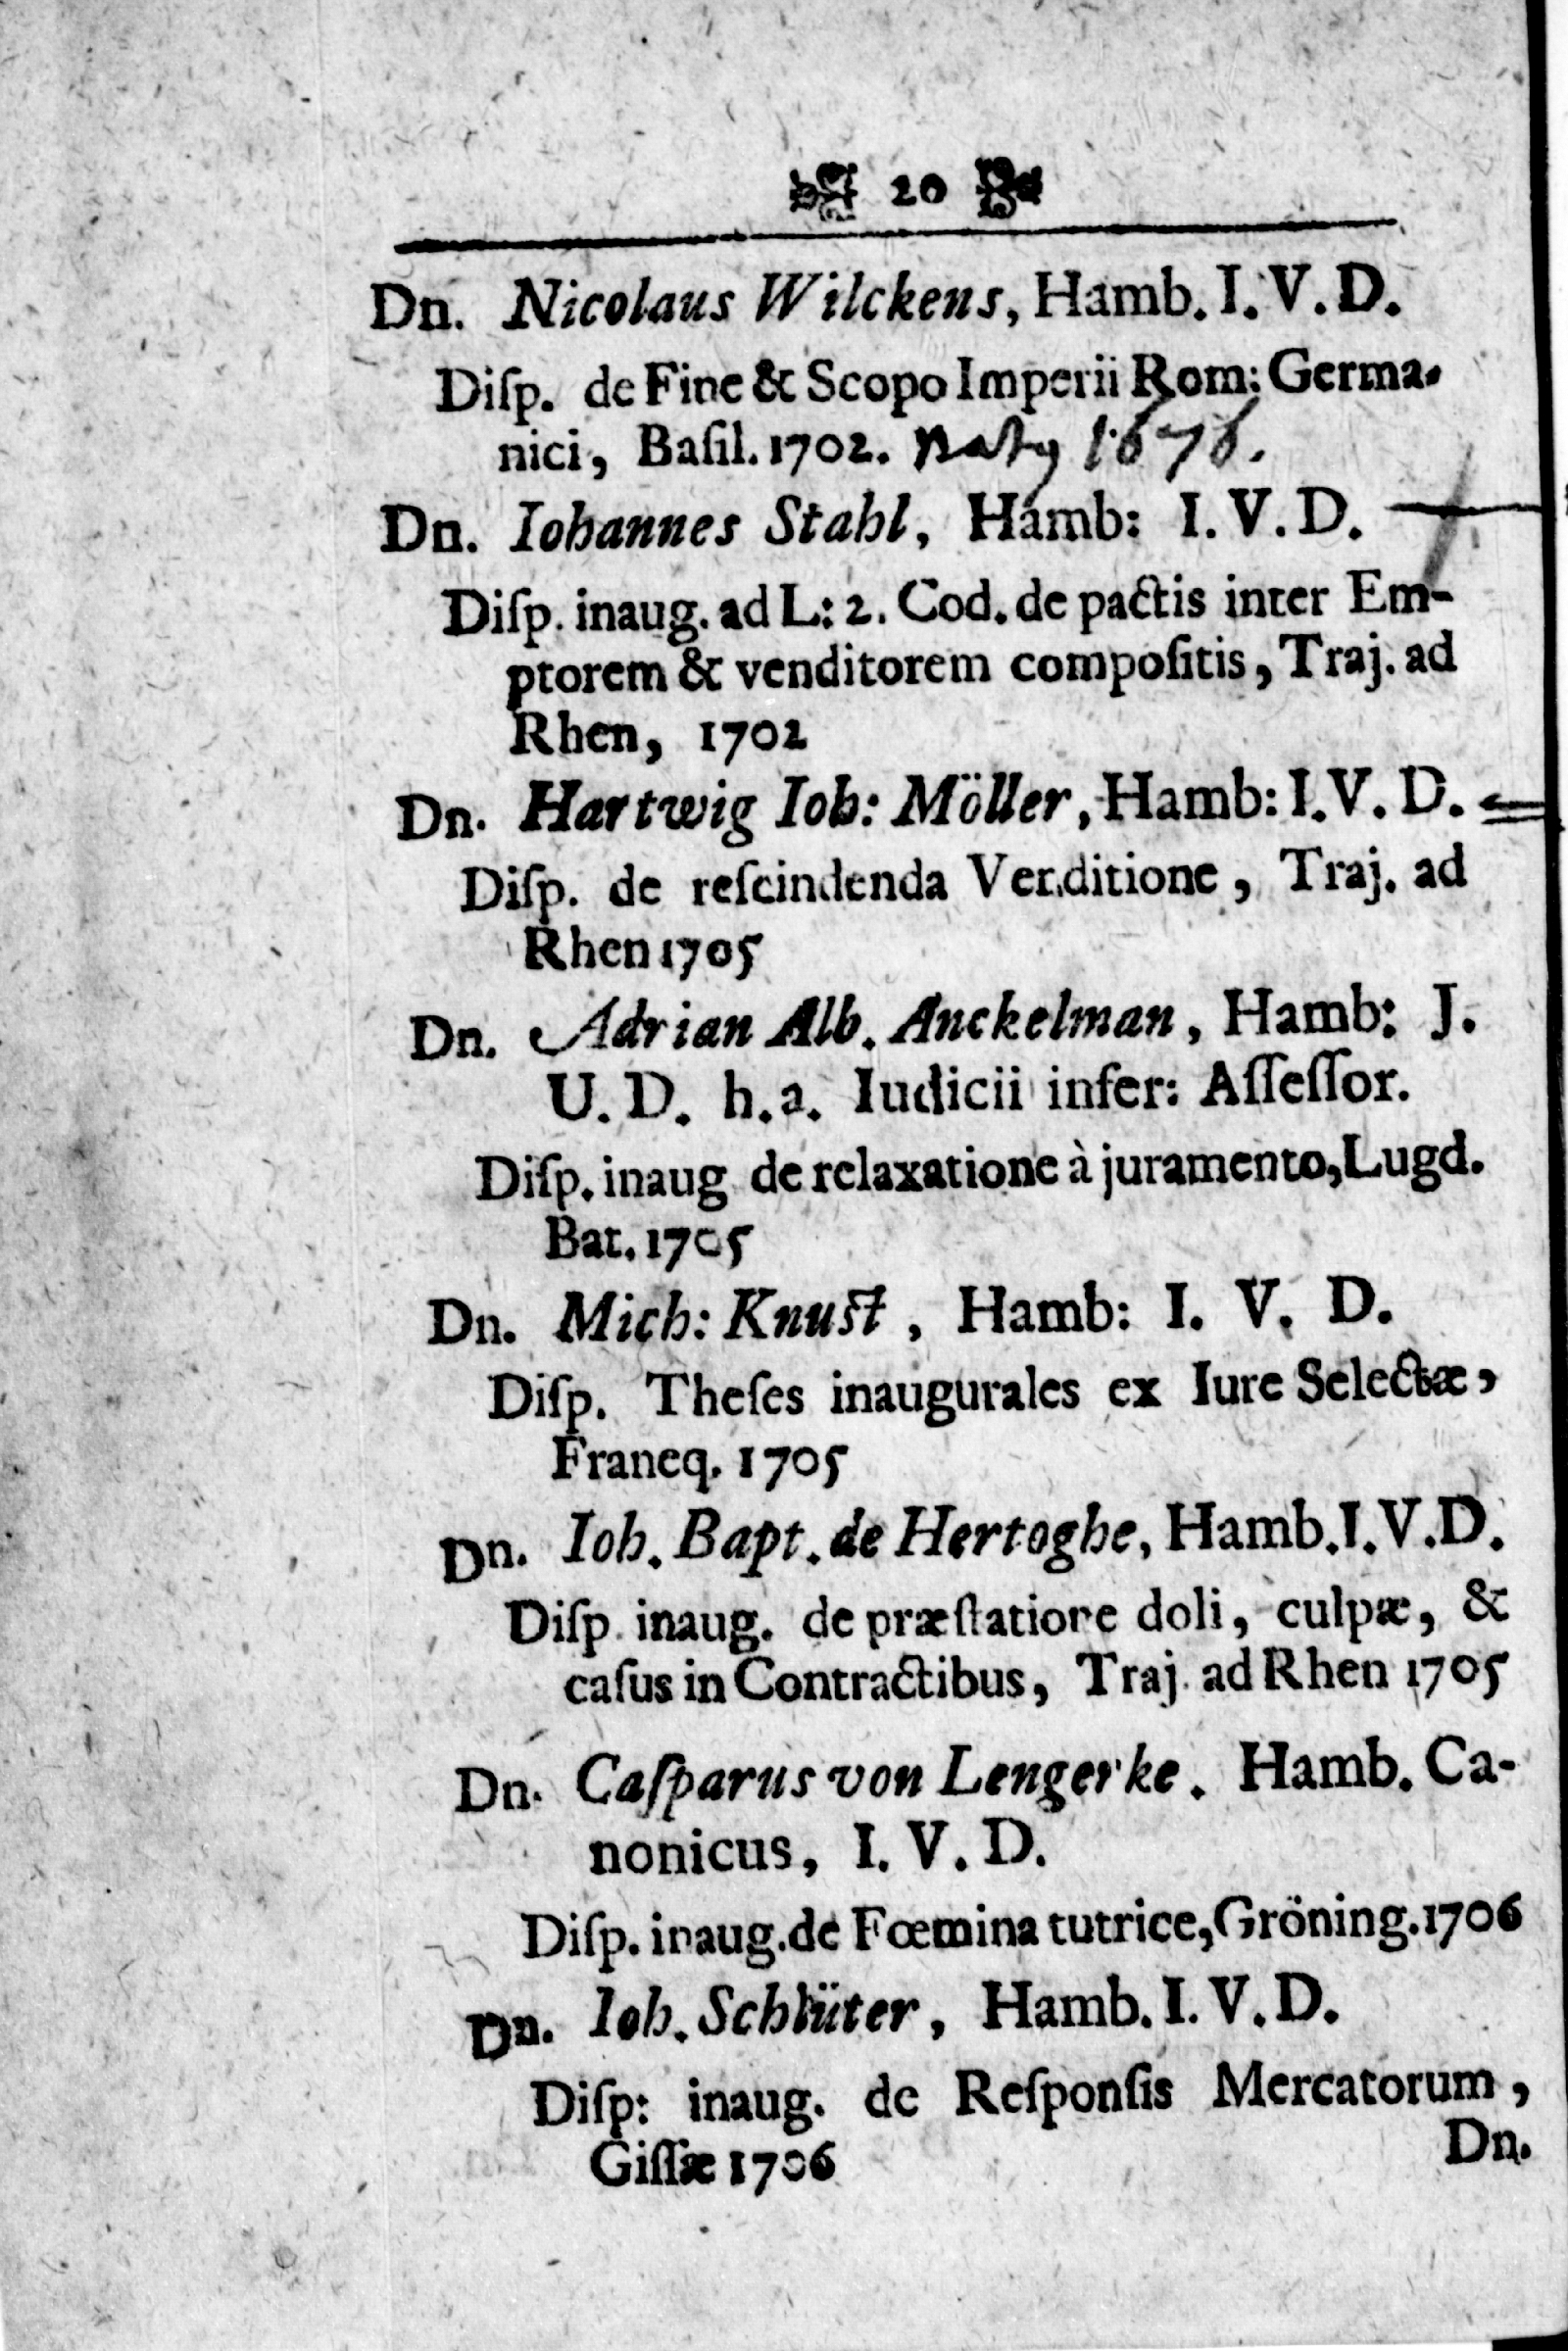 20
Dn. Nicolaus Wilckens, Hamb. I. V. D.
Diſp. de Fine & Scopo Imperii Rom: Germa-
nici, Baſil. 1702. natq 1676.
Dn. Iohannes Stahl, Hamb: I. V. D.
Diſp. inaug. ad L: 2. Cod. de pactis inter Em-
ptorem & venditorem compoſitis, Traj. ad
Rhen, 1702
Dn. Hartwig Ioh: Möller, Hamb: I. V. D.
Diſp. de reſcindenda Venditione, Traj. ad
Rhen 1705
Dn. Adrian Alb. Anckelman, Hamb: J.
U. D. h. a. Iudicii infer: Aſſeſſor.
Diſp. inaug de relaxatione à juramento, Lugd.
Bat. 1705
Dn. Mich: Knuſt, Hamb: I. V. D.
Diſp. Theſes inaugurales ex Iure Selectæ,
Franeq. 1705
Dn. Ioh. Bapt. de Hertoghe, Hamb. I. V. D.
Diſp. inaug. de præſtatione doli, culpæ, &
caſus in Contractibus, Traj. ad Rhen 1705
Dn. Caſparus von Lengerke. Hamb. Ca-
nonicus, I. V. D.
Diſp. inaug. de Fœmina tutrice, Gröning. 1706
Dn. Ioh. Schlüter, Hamb. I. V. D.
Diſp: inaug. de Reſponſis Mercatorum,
Giſſæ 1706
Dn.